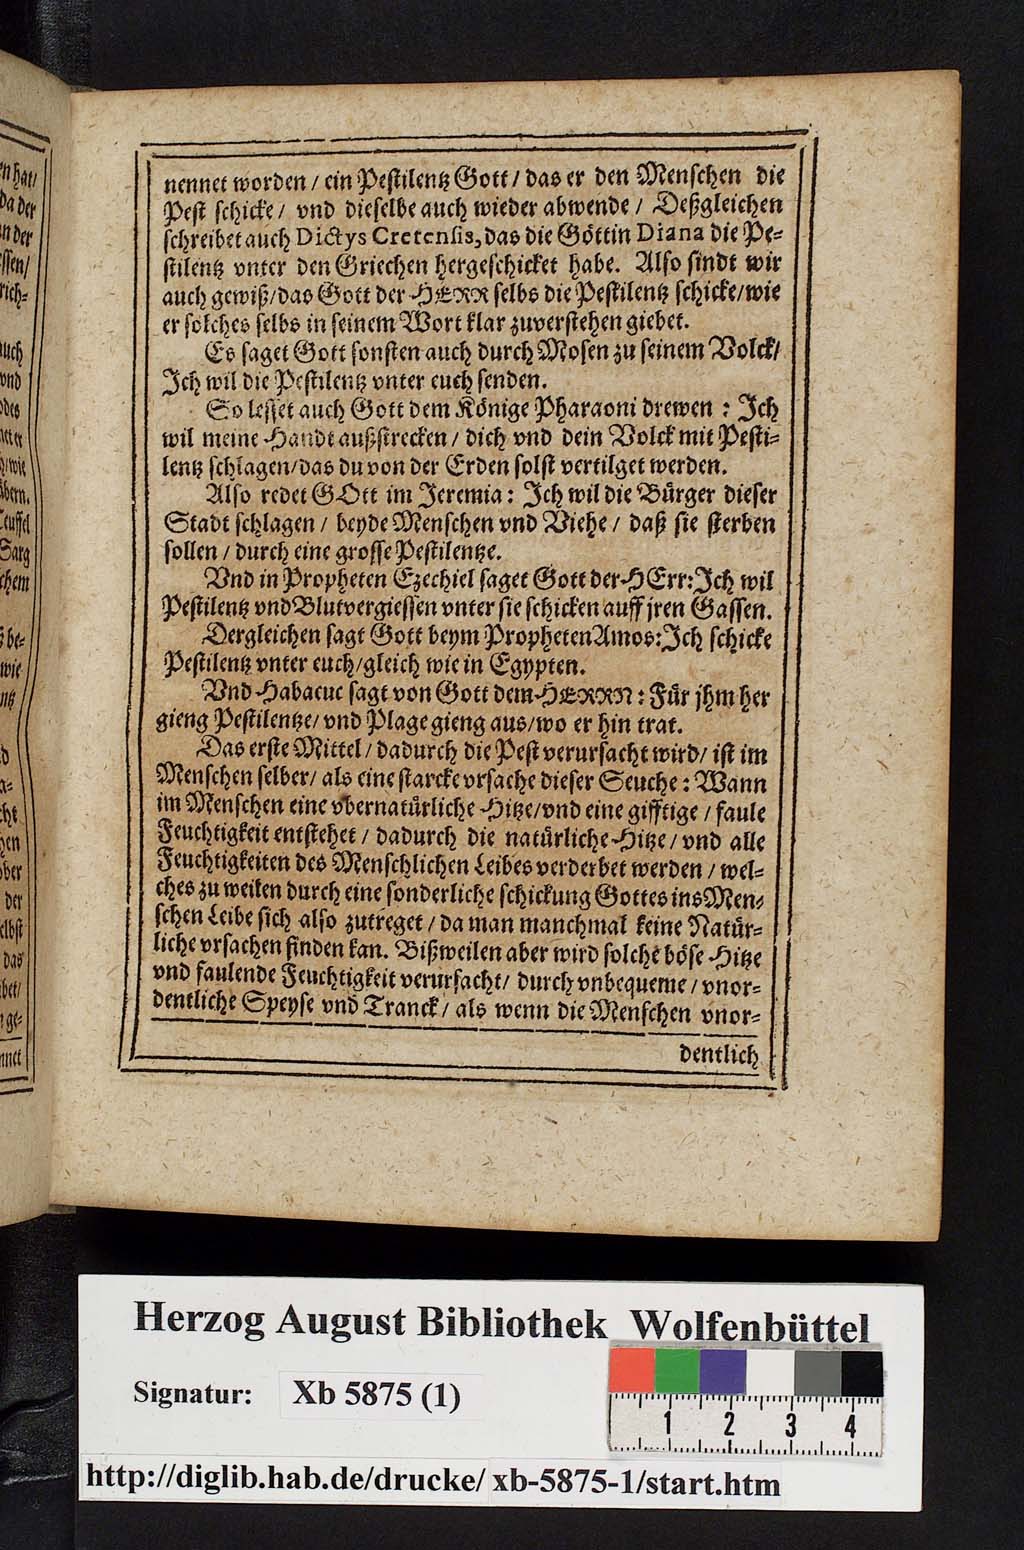 nennet worden / ein Pestilentz Gott / das er den Menschen die
Pest schicke / vnd dieselbe auch wieder abwende / Deßgleichen
schreibet auch Dictys Cretensis, das die Göttin Diana die Pe-
stilentz vnter den Griechen hergeschicket habe. Also sindt wir
auch gewiß / das Gott der HERR selbs die Pestilentz schicke / wie
er solches selbs in seinem Wort klar zuverstehen giebet.
Es saget Gott sonsten auch durch Mosen zu seinem Volck /
Ich wil die Pestilentz vnter euch senden.
So lesset auch Gott dem Könige Pharaoni drewen : Ich
wil meine Handt außstrecken / dich vnd dein Volck mit Pesti-
lentz schlagen / das du von der Erden solst vertilget werden.
Also redet GOtt im Jeremia : Ich wil die Bürger dieser
Stadt schlagen / beyde Menschen vnd Viehe / daß sie sterben
sollen / durch eine grosse Pestilentze.
Vnd in Propheten Ezechiel saget Gott der HErr: Ich wil
Pestilentz vnd Blutvergiessen vnter sie schicken auff jren Gassen.
Dergleichen sagt Gott beym Propheten Amos: Ich schicke
Pestilentz vnter euch / gleich wie in Egypten.
Vnd Habacuc sagt von Gott dem HERRN : Für jhm her
gieng Pestilentze / vnd Plage gieng aus / wo er hin trat.
Das erste Mittel / dadurch die Pest verursacht wird / ist im
Menschen selber / als eine starcke vrsache dieser Seuche : Wann
im Menschen eine vbernatürliche Hitze / vnd eine gifftige / faule
Feuchtigkeit entstehet / dadurch die natürliche Hitze / vnd alle
Feuchtigkeiten des Menschlichen Leibes verderbet werden / wel-
ches zu weilen durch eine sonderliche schickung Gottes ins Men-
schen Leibe sich also zutreget / da man manchmal keine Natür-
liche vrsachen finden kan. Bißweilen aber wird solche böse Hitze
vnd faulende Feuchtigkeit verursacht / durch vnbequeme / vnor-
dentliche Speyse vnd Tranck / als wenn die Menschen vnor-
dentlich
en hat /
da der
n der
ssen /
auch
vnd
wie
äbern.
Teuffel
Sarg
chem
be-
wie
ober
der
elbst
das
ge-
nnet
Herzog August Bibliothek Wolfenbüttel
Signatur: Xb 5875 (1)
1 2 3 4
http://diglib.hab.de/drucke/ xb-5875-1/start.htm